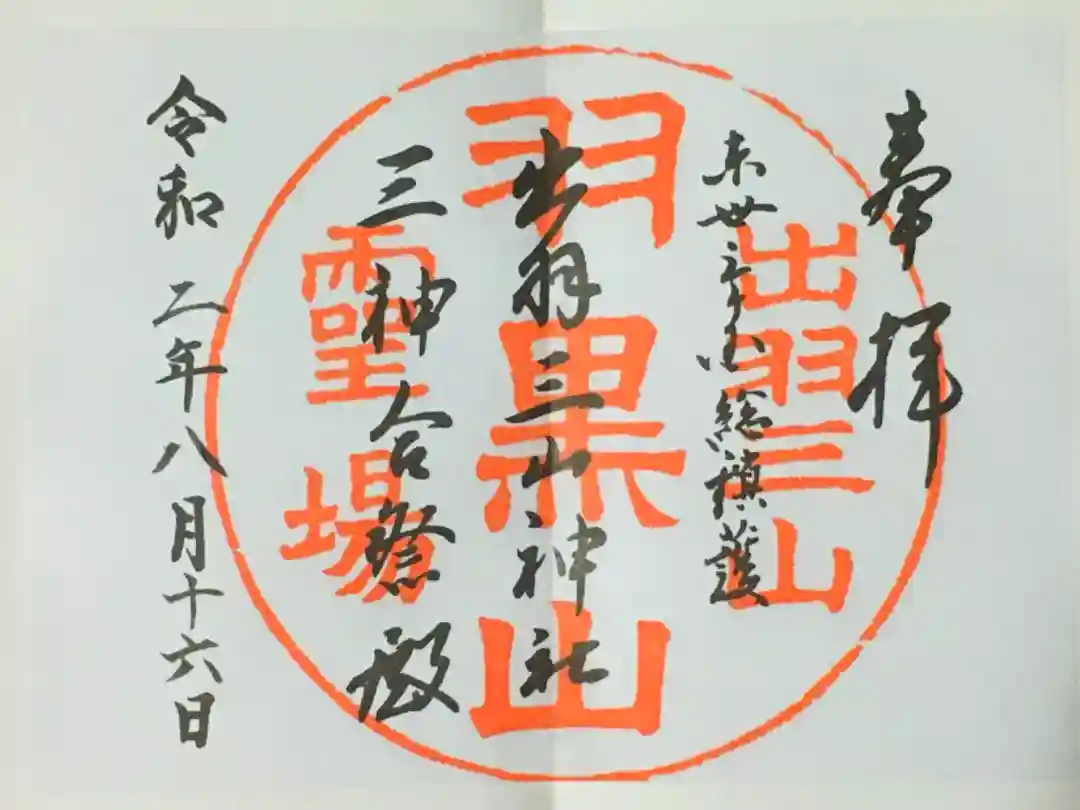 奉拝
東卅三ヶ国総鎮護
出羽三山神社
三神合祭殿
令和二年八月十六日
出羽三山
羽黒山
靈場